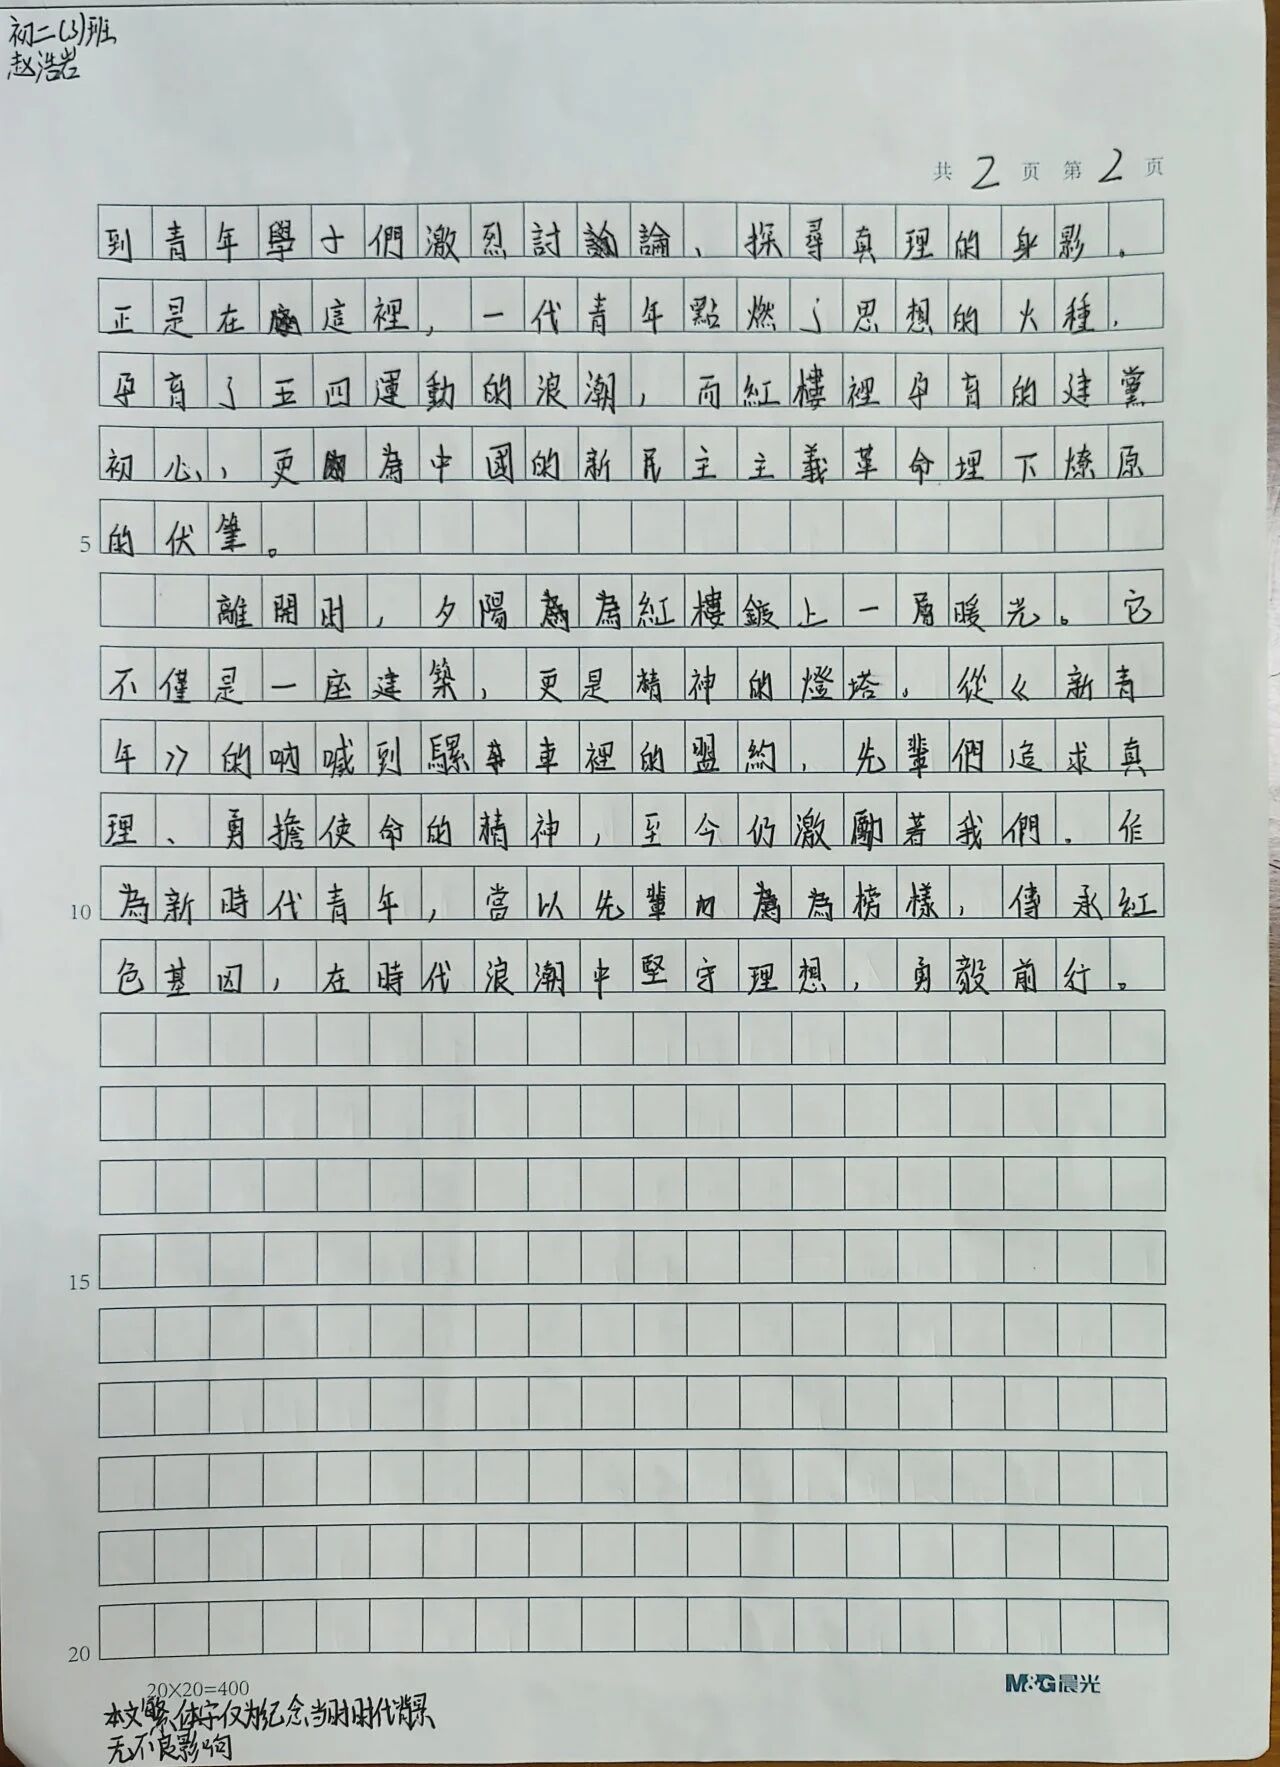 初二(3)班
赵浩岩
共 2 页 第 2 页
到青年學子們激烈討論、探尋真理的身影。
正是在這裡，一代青年點燃了思想的火種，
孕育了五四運動的浪潮，而紅樓裡孕育的建黨
初心，更為中國的新民主主義革命埋下燎原
5 的伏筆。
離開時，夕陽為紅樓鍍上一層暖光。它
不僅是一座建築，更是精神的燈塔。從《新青
年》的吶喊到騾車裡的盟約，先輩們追求真
理、勇擔使命的精神，至今仍激勵著我們。作
10 為新時代青年，當以先輩為榜樣，傳承紅
色基因，在時代浪潮中堅守理想，勇毅前行。
15
20
20×20=400
M&G晨光
本文繁体字仅为纪念当时时代背景
无不良影响